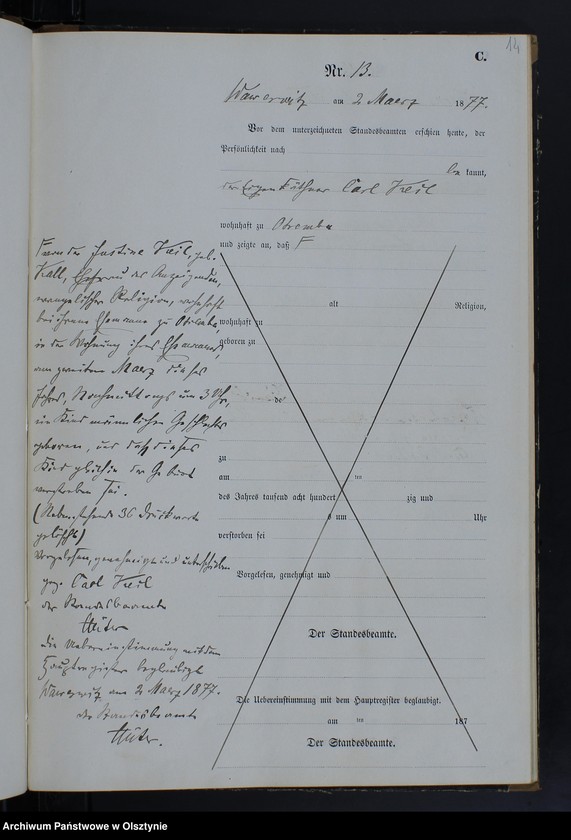 14
C.
Nr. 13.
Wawerwitz am 2 Maerz 1877.
Vor dem unterzeichneten Standesbeamten erschien heute, der
Persönlichkeit nach
be kannt,
der Eigenkäthner Carl Keil
wohnhaft zu Otremba
und zeigte an, daß
alt Religion,
wohnhaft zu
geboren zu
de
zu
am ten
des Jahres tausend acht hundert zig und
s um Uhr
verstorben sei
Vorgelesen, genehmigt und
Der Standesbeamte.
Die Uebereinstimmung mit dem Hauptregister beglaubigt.
am ten 187
Der Standesbeamte.
Justine Keil, geb.
Kall, Ehefrau des Anzeigenden,
evangelischer Religion, wohnhaft
bei ihrem Ehemanne zu Otremba,
in der Wohnung ihres Ehemannes,
am zweiten Maerz dieses
Jahres, Nachmittags um 3 Uhr,
ein Kind männlichen Geschlechts
geboren, und daß dieses
Kind gleich in der Geburt
verstorben sei.
(Nebenstehende 36 Druckworte
gelöscht)
Vorgelesen, genehmigt und unterschrieben
gez. Carl Keil
der Standesbeamte
die Uebereinstimmung mit dem
Hauptregister beglaubigt
Wawerwitz am 2 Maerz 1877.
der Standesbeamte
Archiwum Państwowe w Olsztynie